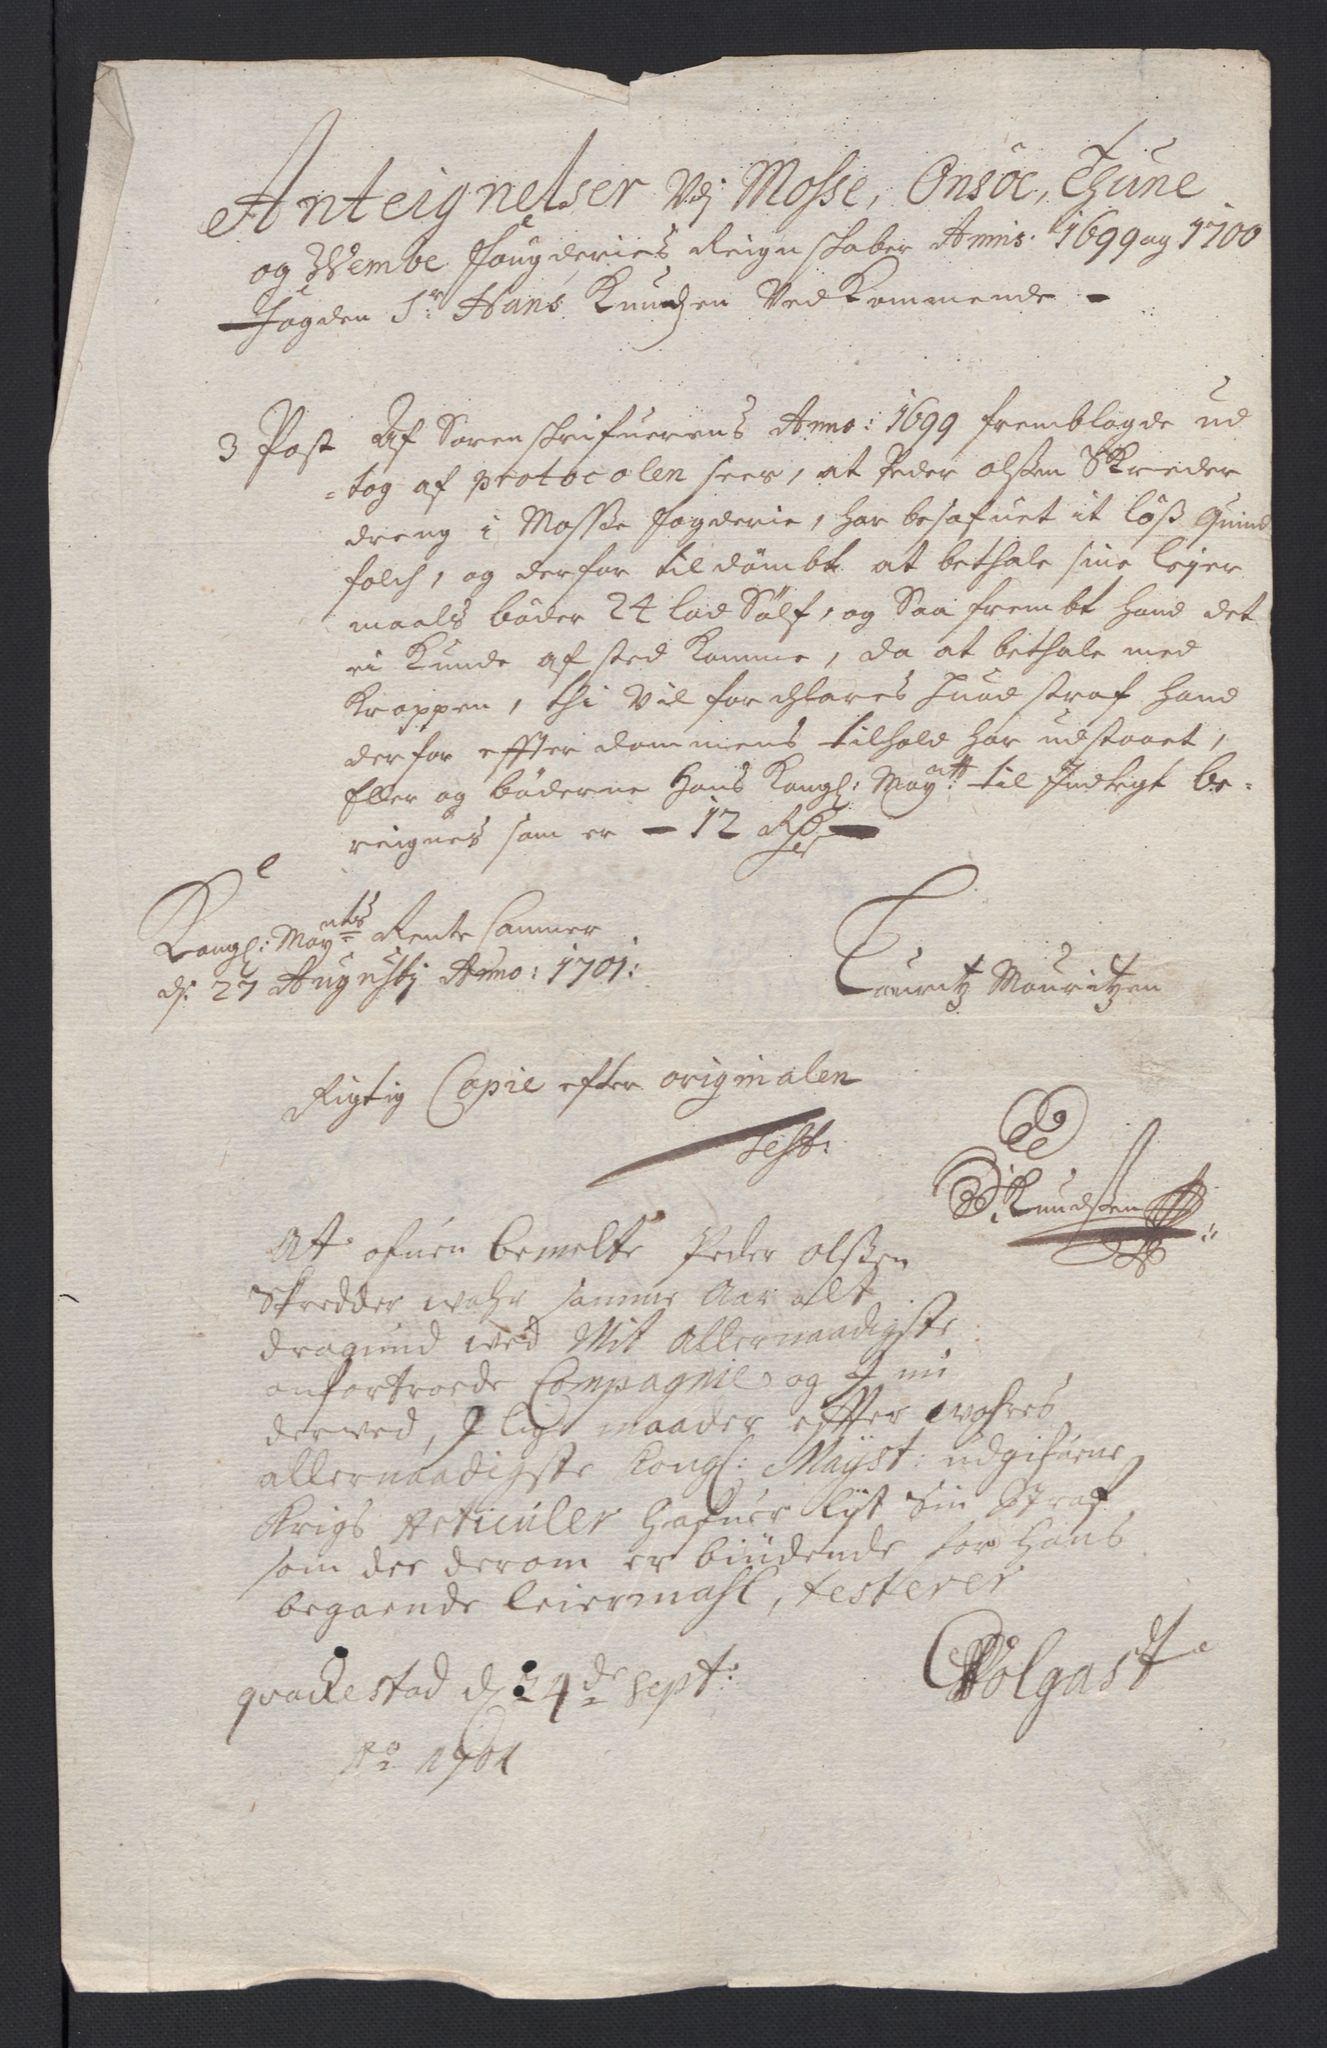 Anteignelser Vdj Mosse, Onsöe, Thune
og Wembe fougderies Reignschaber Annis. 1699 og 1700
Fogden Sr: Hans Knudzen VedKommende -
3 Post Af Sorenschrifuerens Anno: 1699 fremblagde ud
=tog af protocolen sees, at Peder olßen SKreder
dreng i Moße fogderie, har besofuet it löß Quind
folch, og derfor tildömbt at bethale sine lejer
maals böder 24 lod Sölf, og Saa frembt hand det
ei Kunde afsted Komme, da at bethale med
Kroppen, thi Vil forchlares huad straf hand
derfor effter dommens tilhold har udstaaet,
Eller og böderne Hans Kongl: Mayttt: til Indtegt be-
reignes som er - 12 Rdr -
Kongl: Mayttts Rente Cammer
dj: 27 Augustj Anno: 1701:
Lauritz Mouritzen
Rigtig Copie efter originalen
Test:
Knudßen
At ofuen bemelte Peder olßen
Skredder wahr samme Aar alt
dragund wed Mit Allernaadigste
anfortroede Compagnie, og J mi
derved, J lige maader effter wohres
allernaadigste Kongl: Mayst: udgifuene
Krigs Articuler hafuer lijt Sin Straf
som der derom er biudende for hans
begaaende leiermahl, testerer
Wolgast
quackestad d 24de Sept:
Ao 1701